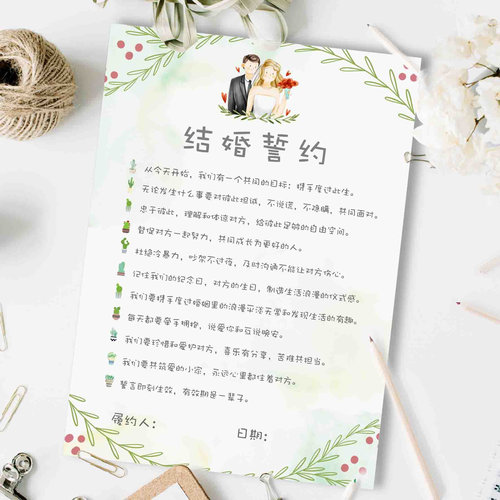 结婚誓约
从今天开始，我们有一个共同的目标：携手度过此生。
无论发生什么事要对彼此坦诚，不说谎，不隐瞒，共同面对。
忠于彼此，理解和体谅对方，给彼此足够的自由空间。
督促对方一起努力，共同成长为更好的人。
杜绝冷暴力，吵架不过夜，及时沟通不能让对方伤心。
记住我们的纪念日，对方的生日，制造生活浪漫的仪式感。
我们要携手度过婚姻里的浪漫平淡无常和发现生活的有趣。
每天都要牵手拥抱，说爱你和互说晚安。
我们要珍惜和爱护对方，喜乐有分享，苦难共担当。
我们要共筑爱的小家，永远心里都住着对方。
誓言即刻生效，有效期是一辈子。
履约人：
日期：